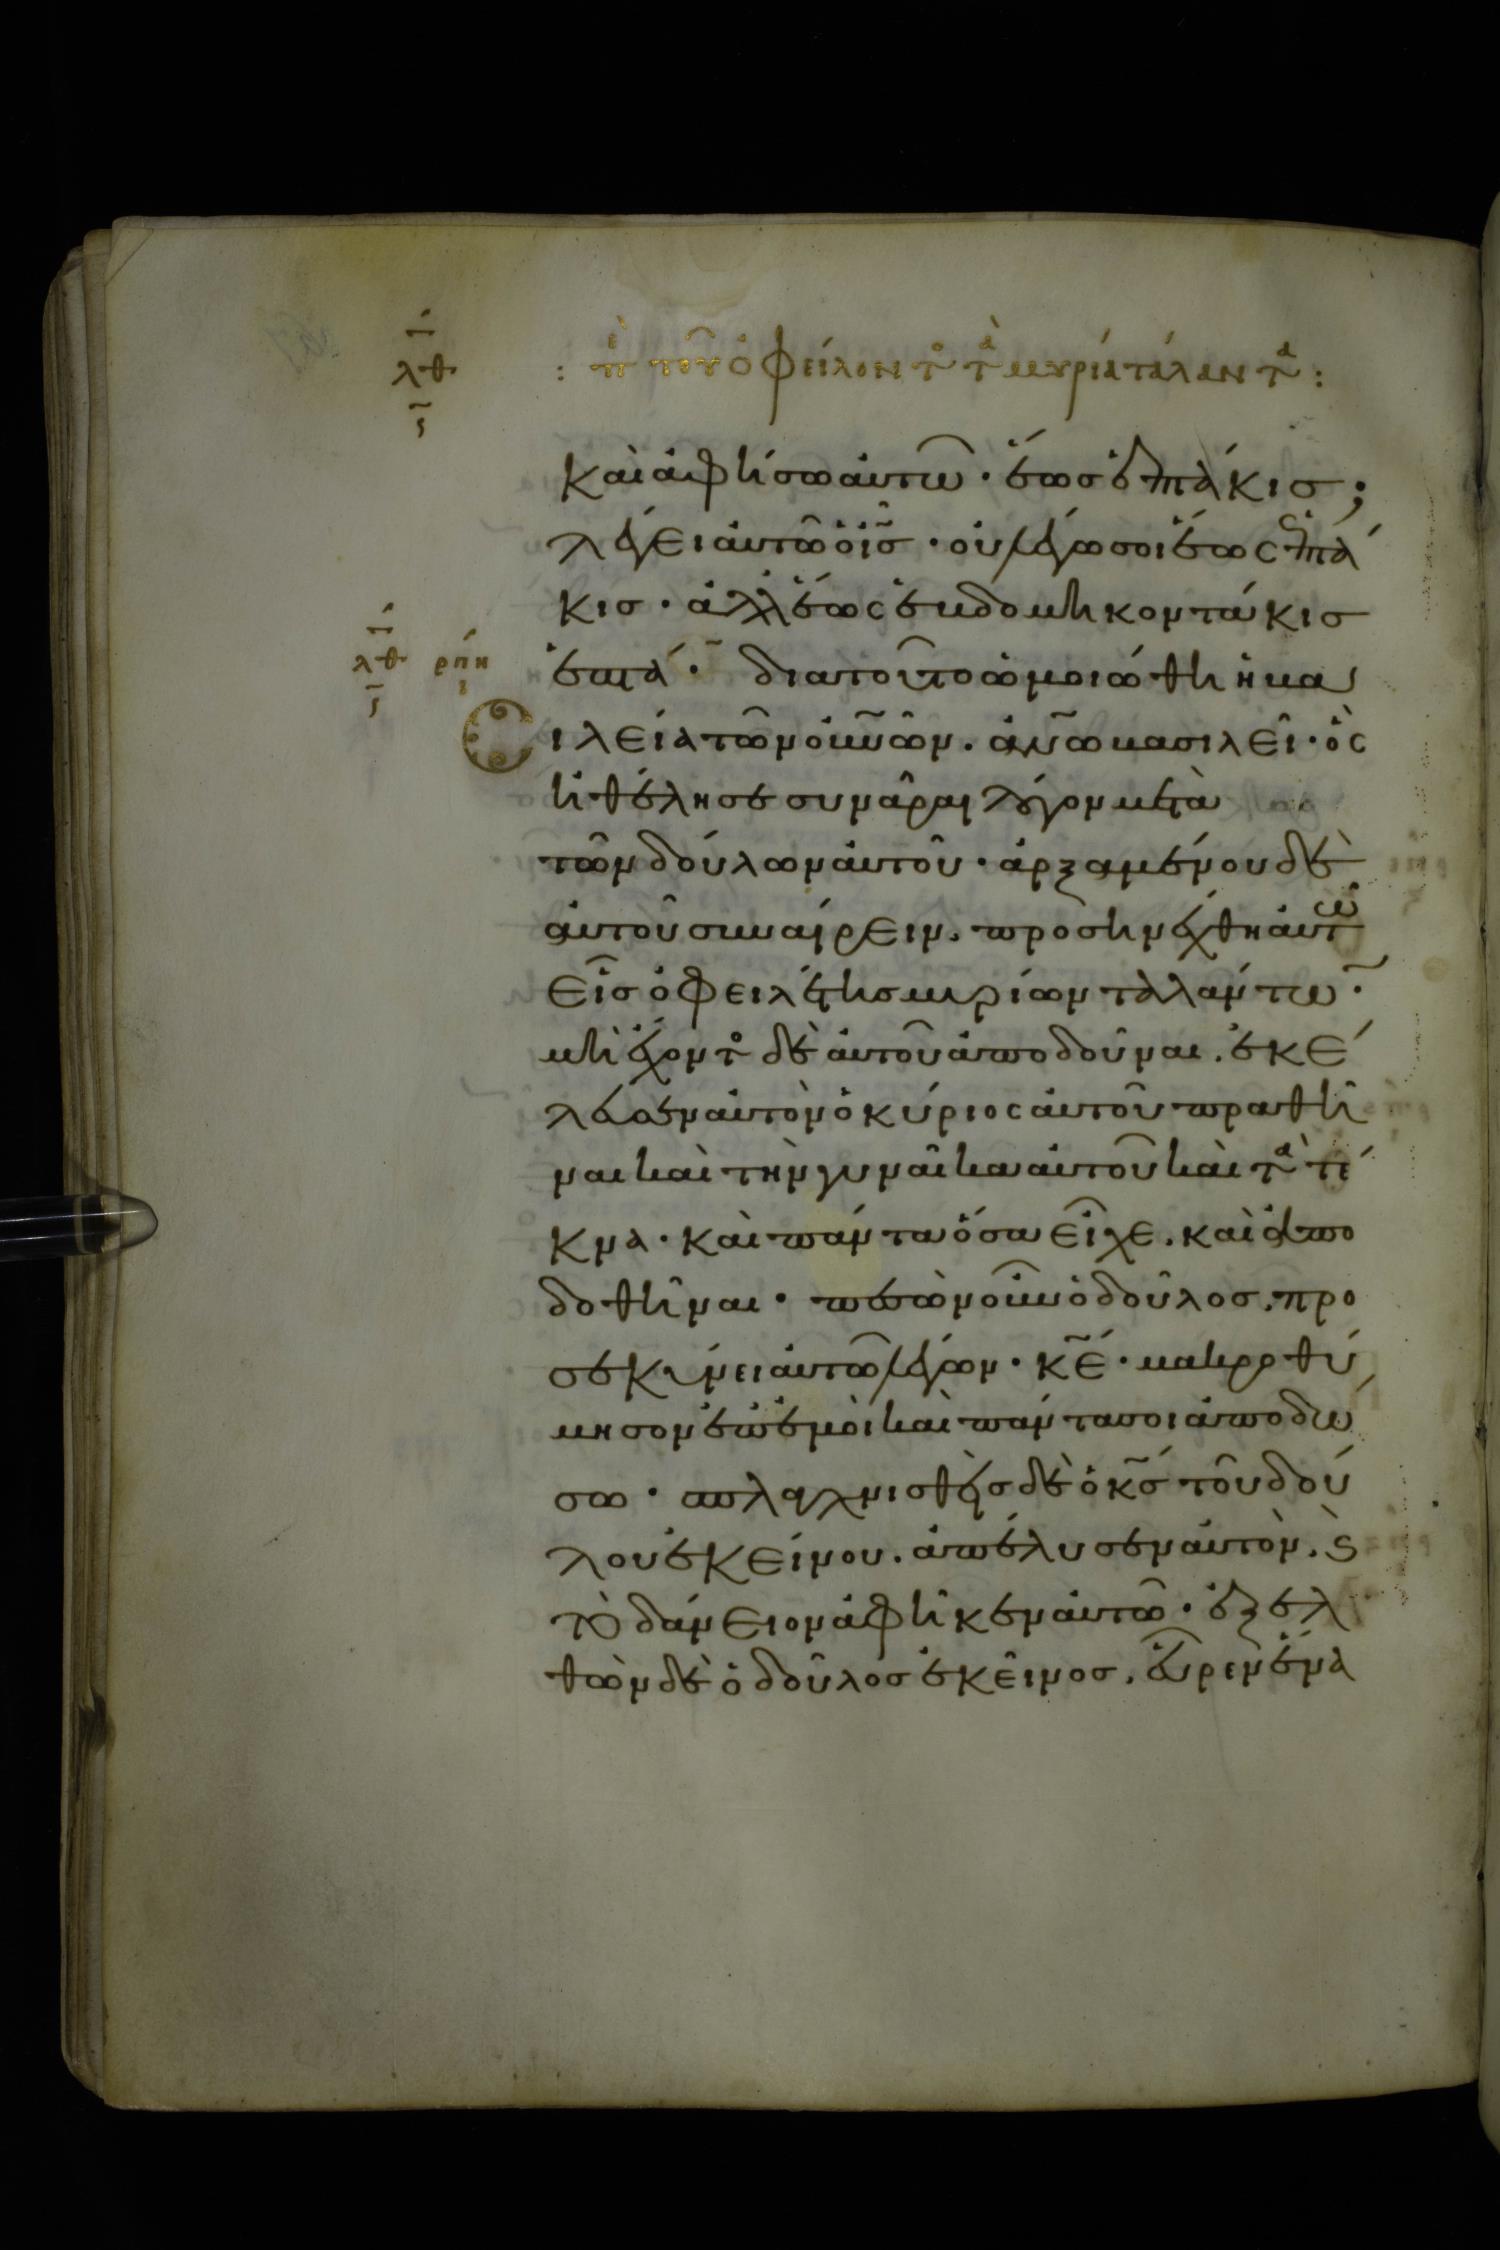 : πὶ τοῦ ὀφείλοντο τὰ μυρία τάλαντα :
ι
λθ
ς
καὶ ἀφήσω αὐτῶ · ἕως ἑπτάκισ ;
λέγει αὐτῶ ὁ ισ̄ · οὐ λέγω σοι ἕως ἑπτά
κισ · ἀλλ' ἕως ἑβδομηκοντάκισ
ι
λθ ρπη
ς ι
ἑπτά · διατοῦτο ὡμοιώθη ἡ βα
σιλεία τῶν οὐνῶν . ἀνω βασιλεῖ · ὃς
ἠθέλησε συνᾶραι λόγον μετὰ
τῶν δούλων αὐτοῦ · ἀρξαμένου δὲ
αὐτοῦ συναίρειν . προσηνέχθη αὐτῶ
εἷσ ὀφειλέτησ μυρίων ταλάντω ·
μὴ ἔχοντο δὲ αὐτοῦ ἀποδοῦναι . ἐκέ
λευσεν αὐτὸν ὁ κύριος αὐτοῦ πραθῆ
ναι καὶ τὴν γυναῖκα αὐτοῦ καὶ τὰ τέ
κνα · καὶ πάντα ὅσα εἶχε . καὶ ἀπο
δοθῆναι · πεσὼν οὖν ὁ δοῦλοσ . προ
σεκύνει αὐτῶ λέγων · κε̄ · μακροθύ
μησον ἐπ' ἐμοὶ καὶ πάντα σοι ἀποδώ
σω · σπλαγχνισθεὶσ δὲ ὁ κσ̄ τοῦ δού
λου ἐκείνου . ἀπέλυσεν αὐτὸν . ϗ
τὸ δάνειον ἀφῆκεν αὐτῶ · ἐξελ
θὼν δὲ ὁ δοῦλοσ ἐκεῖνοσ . εὗρεν ἕνα